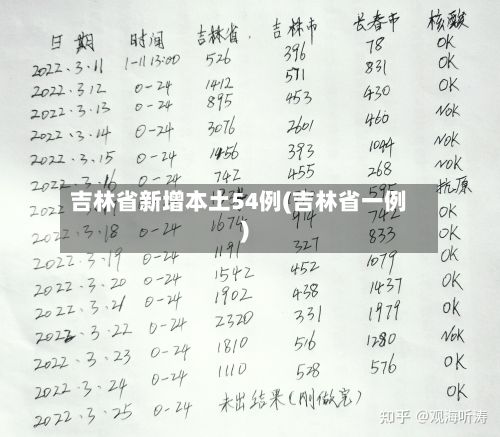 日期 时间 吉林省. 吉林市 长春市 核酸
2022.3.11 1-11 13:00 526 396 78 OK
2022.3.12 0-24 1412 571 831 OK
2022.3.13 0-24 895 453 430 OK
2022.3.14 0-24 3076 2601 460 NoK
2022.3.15 0-24 1456 393 1044 NoK
2022.3.16 0-24 742 455 268 NoK
抗原
吉林省新增本土54例(吉林省一例
)
2022.3.18 0-24 1674 914 742 OK
2022.3.19 0-24 1191 327 833 OK
2022.3.20 0-24 1542 452 1079 OK
2022.3.21 0-24 1902 438 1437 OK
2022.3.22 0-24 2320 331 1979 OK
2022.3.23 0-24 1810 516 1280 NoK
2022.3.24 0-24 1110 528 576 OK
2022.3.25 0-24 未出结果(刚做完) OK
知乎 @观海听涛